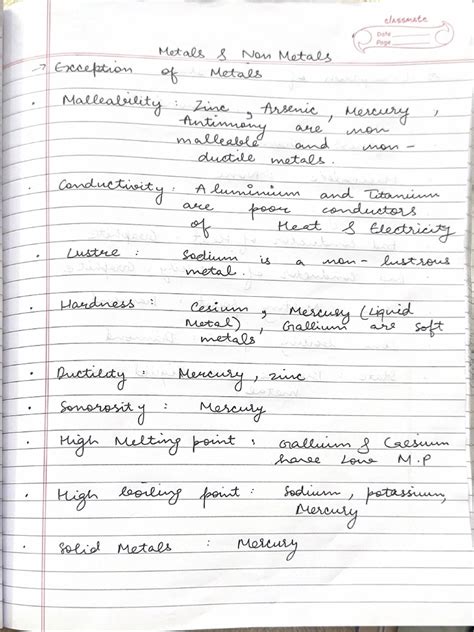 classmate
Date
Page
Metals & Non Metals
→ Exception of Metals
• Malleability : Zinc, Arsenic, Mercury,
Antimony are non
malleable and non-
ductile metals.
• Conductivity : Aluminium and Titanium
are poor conductors
of Heat & Electricity
• Lustre : Sodium is a non-lustrous
metal.
• Hardness : Cesium, Mercury (Liquid
Metal), Gallium are soft
metals
• Ductility : Mercury, zinc
• Sonorosity : Mercury
• High Melting point : Gallium & Caesium
have Low M.P
• High boiling point : Sodium, potassium,
Mercury
• Solid Metals : Mercury